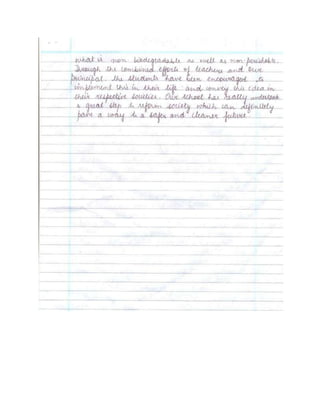 what is non biodegradable as well as non perishable.
Through the combined efforts of teachers and our
principal the students have been encouraged to
implement this in their life and convey this idea in
their respective societies. Our school has really undertaken
a great step to reform society which can definitely
pave a way to a safer and cleaner future